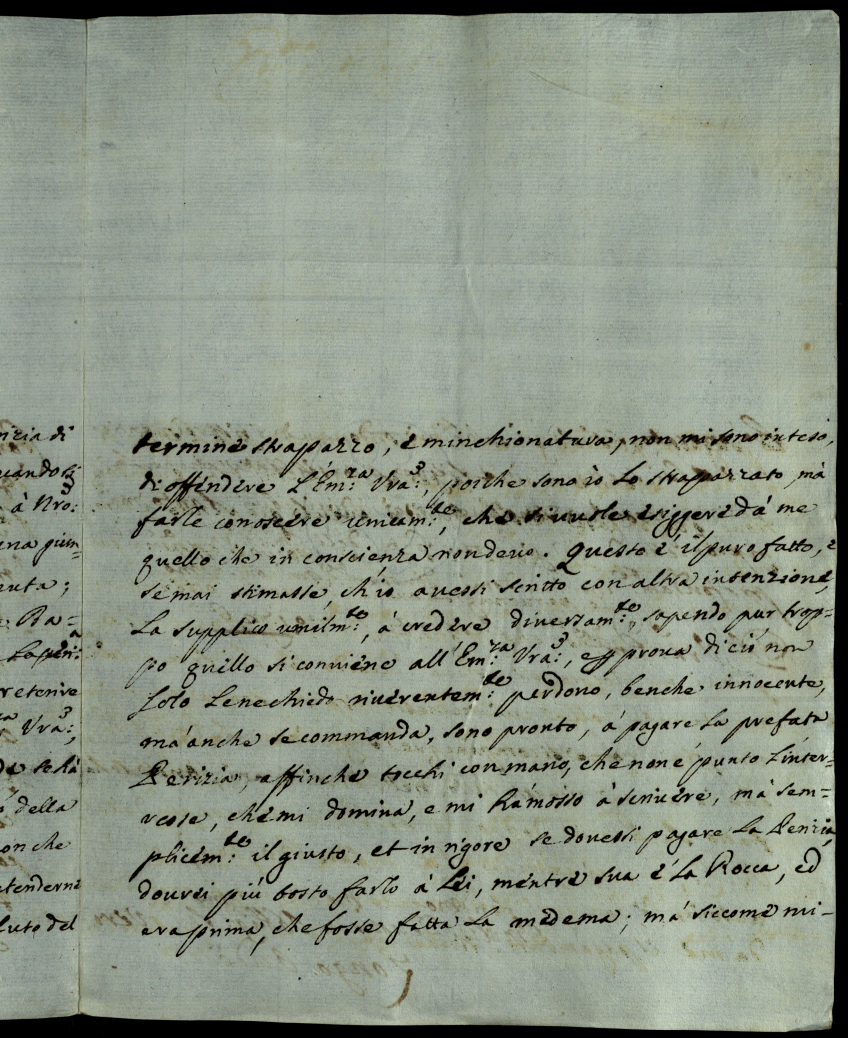 nizia di
uando si
à Nro:
una giun=
uta;
Ra=
La peri:
retenire
Vra:;
della
on che
etenderne
luto del
termine strapazzo, è minchionatura, non mi sono inteso,
di offendere L'Em:za Vra:, poiche sono io Lo strapazzato mà
farle conoscere unicam:te, che si vuole esiggere dá me
quello che in conscienza non devo. Questo è il puro fatto, e
se mai stimasse, ch'io avessi scritto con altra intenzione,
La supplico umilm:te, á credere diversam:te, sapendo pur trop=
po quello si conviene all'Em:za Vra:, e p prova di ció non
solo Lene chiedo riverentem:te perdono, benche innocente,
má anche se commanda, sono pronto, á pagare La prefata
Perizia, affinche tocchi con mano, che non é punto L'inter=
resse, che mi domina, e mi há mosso á scrivere, má sem=
plicem:te il giusto, et in rigore se dovessi pagare La Perizia,
dovrei piú tosto farlo á Lei, mentre sua é La Rocca, ed
era prima, che fosse fatta La medema; má siccome mi-